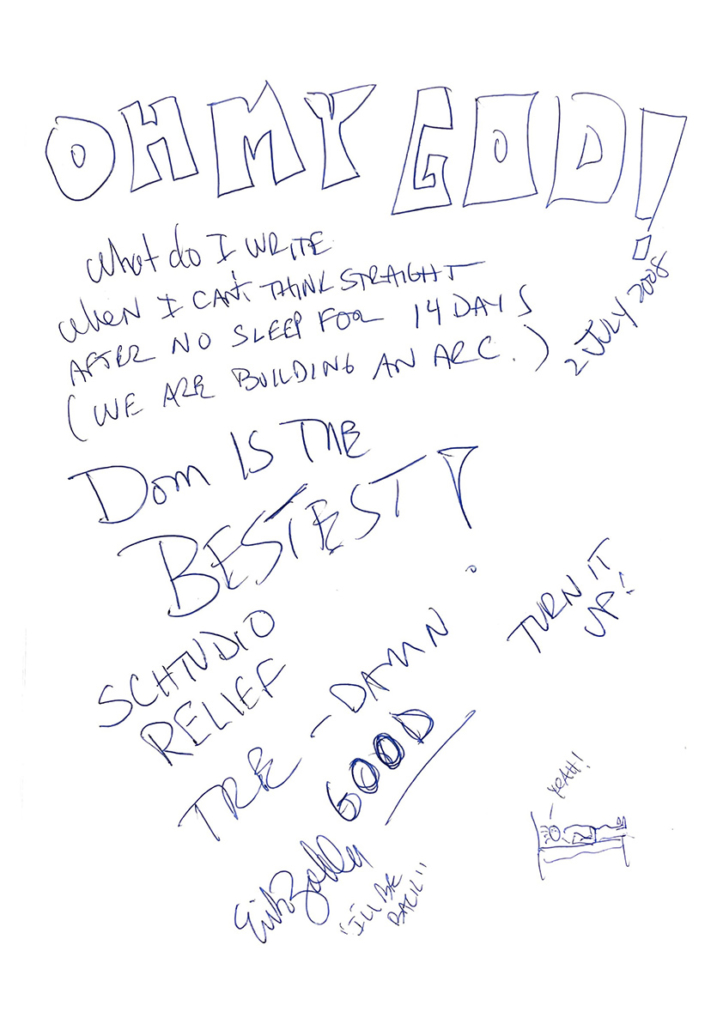 OH MY GOD!
What do I WRITE
WHEN I CAN'T THINK STRAIGHT
AFTER NO SLEEP FOR 14 DAYS
(WE ARE BUILDING AN ARC.)
2 JULY 2008
Dom IS THE
BESTEST!
SCHTUDIO
RELIEF
TURN IT
UP!
TRE-DAMN
GOOD
YEAH!
"I'LL BE
BACK"